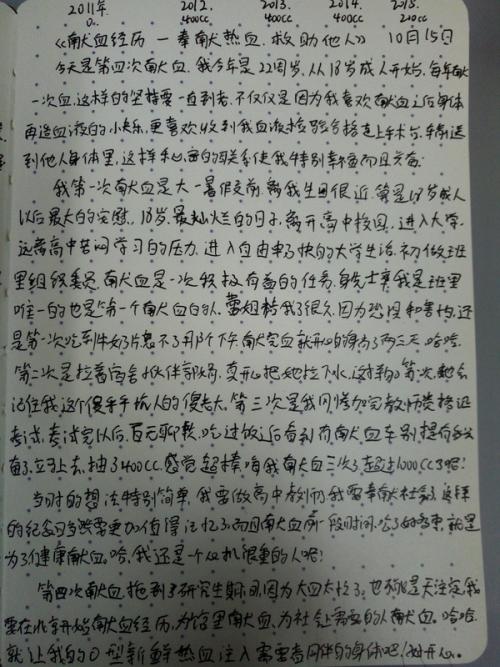 2011年 2012. 2013. 2014. 2015.
400CC 400CC 400CC 200CC
《献血经历 — 奉献热血.救助他人》 10月15日
今天是第四次献血.我今年是22周岁.从18岁成人开始.每年献
一次血.这样的坚持要一直到老.不仅仅是因为我喜欢献血之后身体
再造血液的小快乐.更喜欢收到我血液检验合格走上手术台.
到他人身体里.这样私密的关系使我特别幸福而且光荣.
我第一次献血是大一暑假前.离我生日很近.算是18岁成人
以后最大的完慰.18岁.最灿烂的日子.离开高中校园.进入大学.
远离高中苦闷学习的压力.进入自由轻快的大学生活.初做班
里组织委员.献血是一次积极有益的任务.身先士卒.我是班里
唯一的也是第一个献血的人.我了很久.因为恐惧和害怕.还
是第一次吃到牛奶片忍不了那个下午献完血就开心的得了两三天.哈哈.
第二次是拉着宿舍小伙伴.真开心把她拉下水.这对她第一次.她会
记住我这个傻乎乎的人的傻老大.第三次是我刚参加完教师资格证
考试.考试完以后.百无聊赖.吃过饭之后看到有献血车别提有多兴
奋了.立马上去.抽了400CC.感觉超棒.我献血三次了.超过1000CC了吧!
当时的想法特别简单.我要做高中教师.我要奉献社会.这样
的纪念日当然需要更加值得记忆.而且献血前一段时间.就是
为了健康献血.哈.我还是一个心机很重的人呢!
第四次献血.拖到了研究生期间.因为大四太忙了.也可能是天注定.我
要在北京开始献血经历.为馆里献血.为社会上需要的人献血.哈哈.
就让我的O型新鲜热血注入需要者同伴的身体吧!好开心.